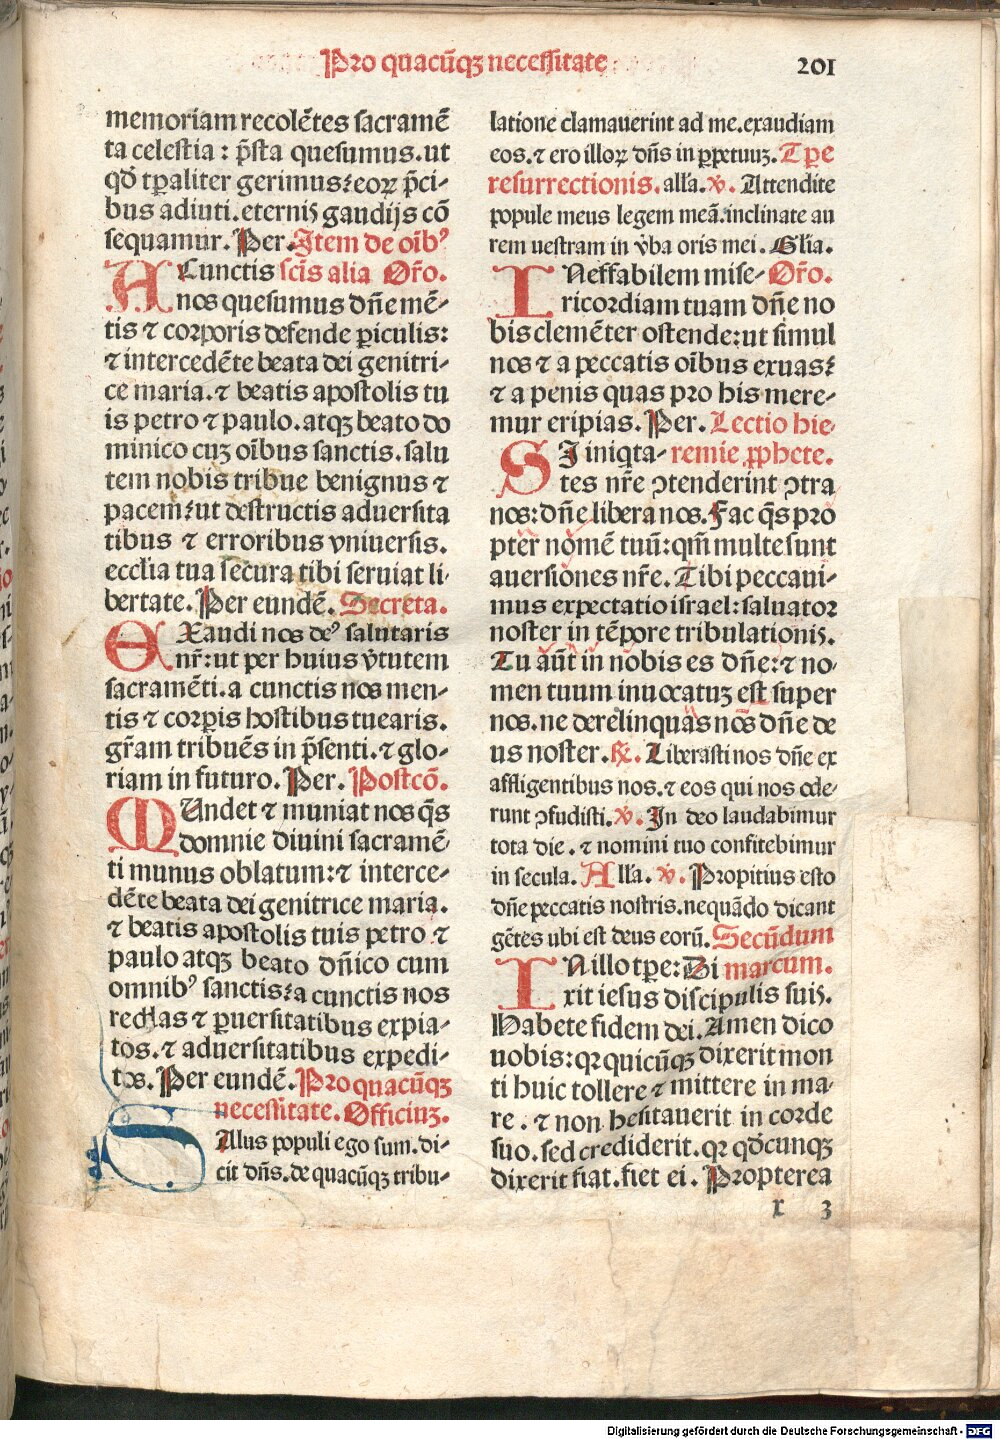 Pro quacūqꝫ necessitate
201
memoriam recolētes sacramē
ta celestia: p̄sta quesumus.ut
qd̄ tꝑaliter gerimus:eoꝝ p̄ci-
bus adiuti.eternis gaudijs cō
sequamur. Per. Item de oīb⁹
A Cunctis scīs alia Oro.
nos quesumus dn̄e mē-
tis ⁊ corporis defende ꝑiculis:
⁊ intercedēte beata dei genitri-
ce maria.⁊ beatis apostolis tu
is petro ⁊ paulo.atqꝫ beato do
minico cuꝫ oībus sanctis.salu
tem nobis tribue benignus ⁊
pacem:ut destructis aduersita
tibus ⁊ erroribus vniuersis.
ecclīa tua secura tibi seruiat li-
bertate. Per eundē. Secreta.
EXaudi nos de⁹ salutaris
nr̄:ut per huius v̄tutem
sacramēti.a cunctis nos men-
tis ⁊ corꝑis hostibus tuearis.
gr̄am tribuēs in p̄senti.⁊ glo-
riam in futuro. Per. Postcō.
MUndet ⁊ muniat nos qs̄
domnie diuini sacramē-
ti munus oblatum:⁊ interce-
dēte beata dei genitrice maria.
⁊ beatis apostolis tuis petro ⁊
paulo atqꝫ beato dn̄ico cum
omnib⁹ sanctis:a cunctis nos
reddas ⁊ ꝑuersitatibus expia-
tos.⁊ aduersitatibus expedi-
tos. Per eundē. Pro quacūqꝫ
necessitate. Officiuꝫ.
SAlus populi ego sum.di-
cit dn̄s.de quacūqꝫ tribu-
latione clamauerint ad me.exaudiam
eos.⁊ ero illoꝝ dn̄s in ꝑpetuuꝫ. Tꝑe
resurrectionis. alła. ꝟ. Attendite
popule meus legem meā.inclinate au
rem uestram in v̄ba oris mei. Glīa.
INeffabilem mise- Oro.
ricordiam tuam dn̄e no
bis clemēter ostende:ut simul
nos ⁊ a peccatis oībus exuas:
⁊ a penis quas pro his mere-
mur eripias. Per. Lectio hie-
SI iniqta- remie ꝓphete.
tes nr̄e ↄtenderint ↄtra
nos:dn̄e libera nos. Fac qs̄ pro
pter nomē tuū:qm̄ multe sunt
auersiones nr̄e. Tibi peccaui-
mus expectatio israel:saluator
noster in tēpore tribulationis.
Tu aūt in nobis es dn̄e:⁊ no-
men tuum inuocatuꝫ est super
nos.ne derelinquas nos dn̄e de
us noster. ℞. Liberasti nos dn̄e ex
affligentibus nos.⁊ eos qui nos ode-
runt ↄfudisti. ꝟ. In deo laudabimur
tota die.⁊ nomini tuo confitebimur
in secula. Alła. ꝟ. Propitius esto
dn̄e peccatis nostris.nequādo dicant
gētes ubi est deus eorū. Secūdum
IN illo tꝑe: Di marcum.
xit iesus discipulis suis.
Habete fidem dei. Amen dico
uobis:qꝛ quicūqꝫ dixerit mon
ti huic tollere ⁊ mittere in ma-
re. ⁊ non hesitauerit in corde
suo.sed crediderit.qꝛ qd̄cunqꝫ
dixerit fiat.fiet ei. Propterea
x 3
Digitalisierung gefördert durch die Deutsche Forschungsgemeinschaft - DFG